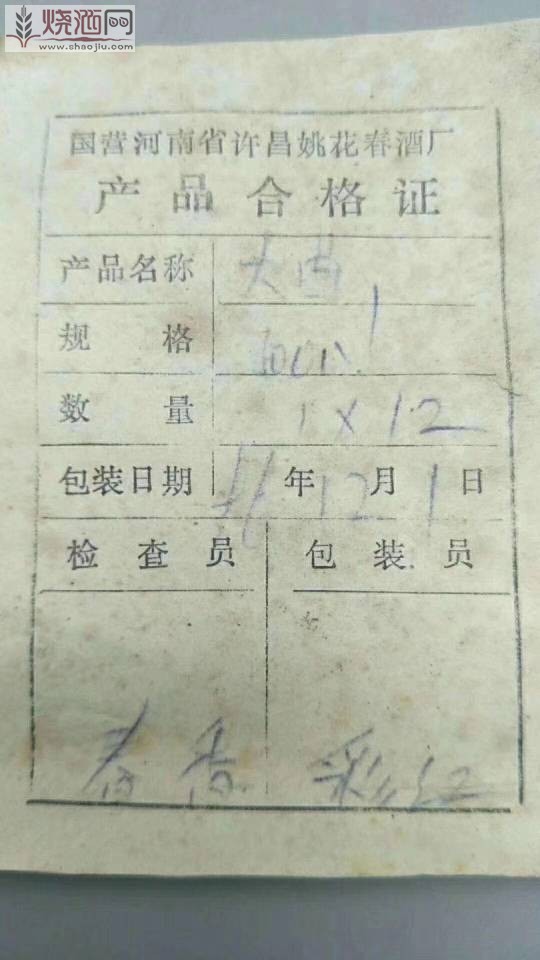 烧酒网
www.shaojiu.com
国营河南省许昌姚花春酒厂
产品合格证
产品名称
规格
数量 1×12
包装日期 年12月1日
检查员 包装员
春香 彩红